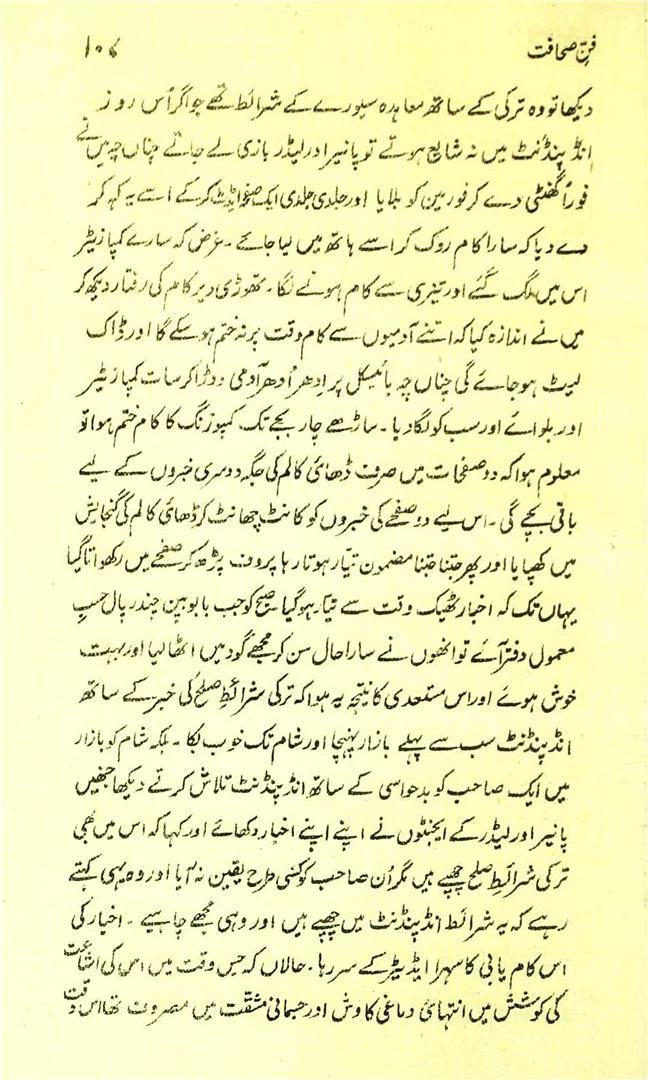 فنِّ صحافت ۱۰۷
دیکھا تو وہ ترکی کے ساتھ معاہدہ سیورے کے شرائط تھے جو اگر اُس روز
انڈپنڈنٹ میں نہ شایع ہوتے تو پانیر اور لیڈر بازی لے جاتے چناں چہ میں نے
فوراً گھنٹی دے کر فورمین کو بلایا اور جلدی جلدی ایک صفحہ ایڈٹ کرکے اسے یہ کہہ کر
دے دیا کہ سارا کام روک کر اسے ہاتھ میں لیا جائے ۔ غرض کہ سارے کمپازیٹر
اس میں لگ گئے اور تیزی سے کام ہونے لگا ۔ تھوڑی دیر کام کی رفتار دیکھ کر
میں نے اندازہ کیا کہ اتنے آدمیوں سے کام وقت پر نہ ختم ہو سکے گا اور ڈاک
لیٹ ہو جائے گی چناں چہ بائیسکل پر اِدھر اُدھر آدمی دوڑا کر سات کمپازیٹر
اور بلوائے اور سب کو لگا دیا ۔ ساڑھے چار بجے تک کمپوزنگ کا کام ختم ہوا تو
معلوم ہوا کہ دو صفحات میں صرف ڈھائی کالم کی جگہ دوسری خبروں کے لیے
باقی بچے گی ۔ اس لیے دو صفحے کی خبروں کو کانٹ چھانٹ کر ڈھائی کالم کی گنجایش
میں کھپایا اور پھر جتنا جتنا مضمون تیار ہوتا رہا پروف پڑھ کر صفحے میں رکھواتا گیا
یہاں تک کہ اخبار ٹھیک وقت سے تیار ہوگیا صبح کو جب بابو بپن چندر پال حسبِ
معمول دفتر آئے تو انھوں نے سارا حال سن کر مجھے گود میں اٹھا لیا اور بہت
خوش ہوئے اور اس مستعدی کا نتیجہ یہ ہوا کہ ترکی شرائطِ صلح کی خبر کے ساتھ
انڈپنڈنٹ سب سے پہلے بازار پہنچا اور شام تک خوب بکا ۔ بلکہ شام کو بازار
میں ایک صاحب کو بدحواسی کے ساتھ انڈپنڈنٹ تلاش کرتے دیکھا جنھیں
پانیر اور لیڈر کے ایجنٹوں نے اپنے اپنے اخبار دکھائے اور کہا کہ اس میں بھی
ترکی شرائطِ صلح چھپے ہیں مگر اُن صاحب کو کسی طرح یقین نہ آیا اور وہ یہی کہتے
رہے کہ یہ شرائط انڈپنڈنٹ میں چھپے ہیں اور وہی مجھے چاہیے ۔ اخبار کی
اس کام یابی کا سہرا ایڈیٹر کے سر رہا ۔ حالاں کہ جس وقت میں اس کی اشاعت
کی کوشش میں انتہائی دماغی کاوش اور جسمانی مشقت میں مصروف تھا اس وقت